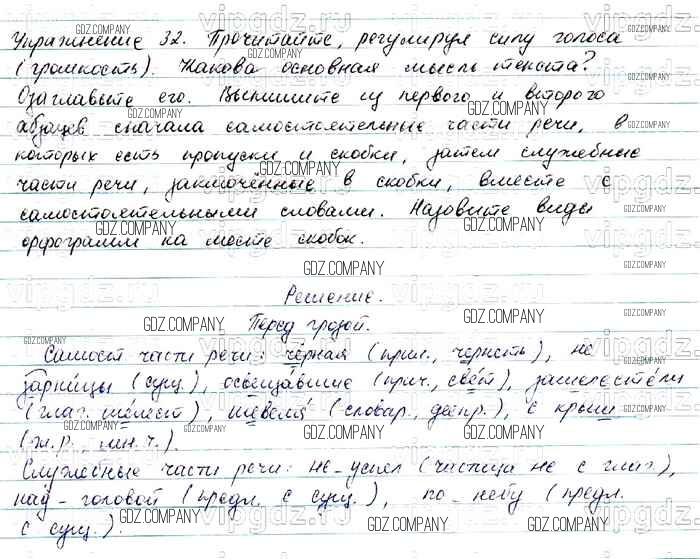 Упражнение 32. Прочитайте, регулируя силу голоса
(громкость). Какова основная мысль текста?
Озаглавьте его. Выпишите из первого и второго
абзацев сначала самостоятельные части речи, в
которых есть пропуски и скобки, затем служебные
части речи, заключённые в скобки, вместе с
самостоятельными словами. Назовите виды
орфограмм на месте скобок.
Решение.
Перед грозой.
Самост части речи: чёрная (прил., чернеть), не
зарницы (сущ.), освещавшие (прич., свет), зашелестели
(глаг. шелест), шевеля (словар., деепр.), с крыш
(ж.р., мн.ч.).
Служебные части речи: не-успел (частица не с глаг.),
над-головой (предл. с сущ.), по-небу (предл.
с сущ.).